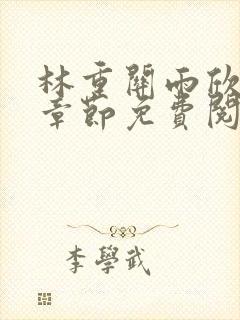 林重關雨欣
章節免費閱
李學武